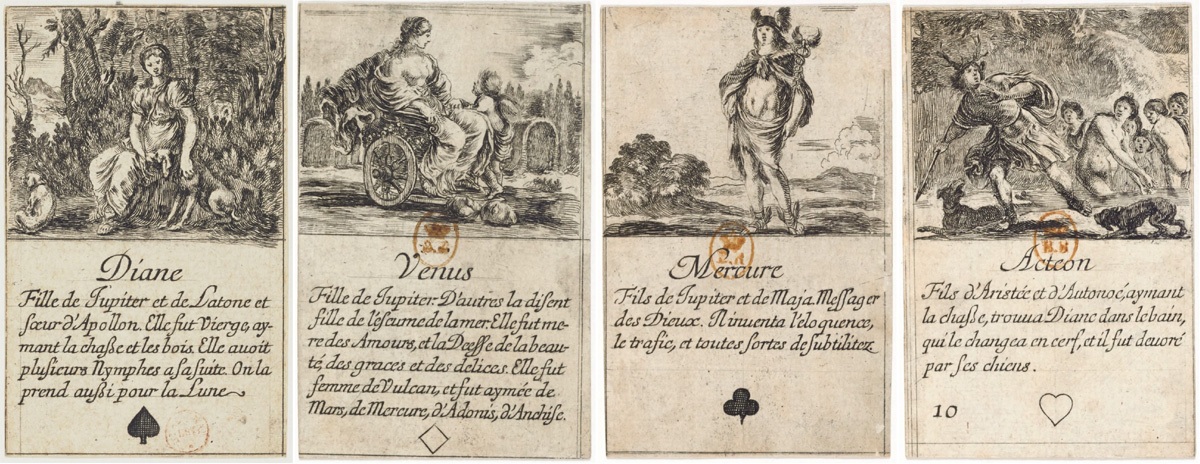 Diane
Fille de Iupiter et de Latone et
sœur d'Apollon. Elle fut Vierge, ay-
mant la chasse et les bois. Elle auoit
plusieurs Nymphes a sa suite. On la
prend aussi pour la Lune
Venus
Fille de Iupiter. D'autres la disent
fille de l'escume de la mer. Elle fut me-
re des Amours, et la Deesse de la beau-
té, des graces et des delices. Elle fut
femme de Vulcan, et fut aymée de
Mars, de Mercure, d'Adonis, d'Anchise.
Mercure
Fils de Iupiter et de Maja. Messager
des Dieux. Il inuenta l'eloquence,
le trafic, et toutes sortes de subtilitez
Acteon
Fils d'Aristée et d'Autonoé, aymant
la chasse, trouua Diane dans le bain,
qui le changea en cerf, et il fut deuoré
par ses chiens.
10